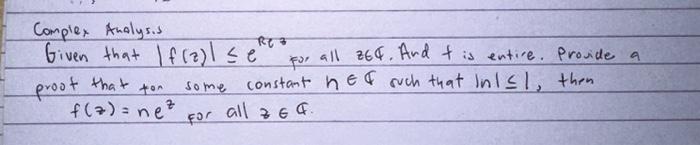 Complex Analysis
Given that |f(z)| ≤ e^{Re z} for all z∈ℂ. And f is entire. Provide a
proof that for some constant n ∈ ℂ such that |n| ≤ 1, then
f(z) = ne^z for all z ∈ ℂ.